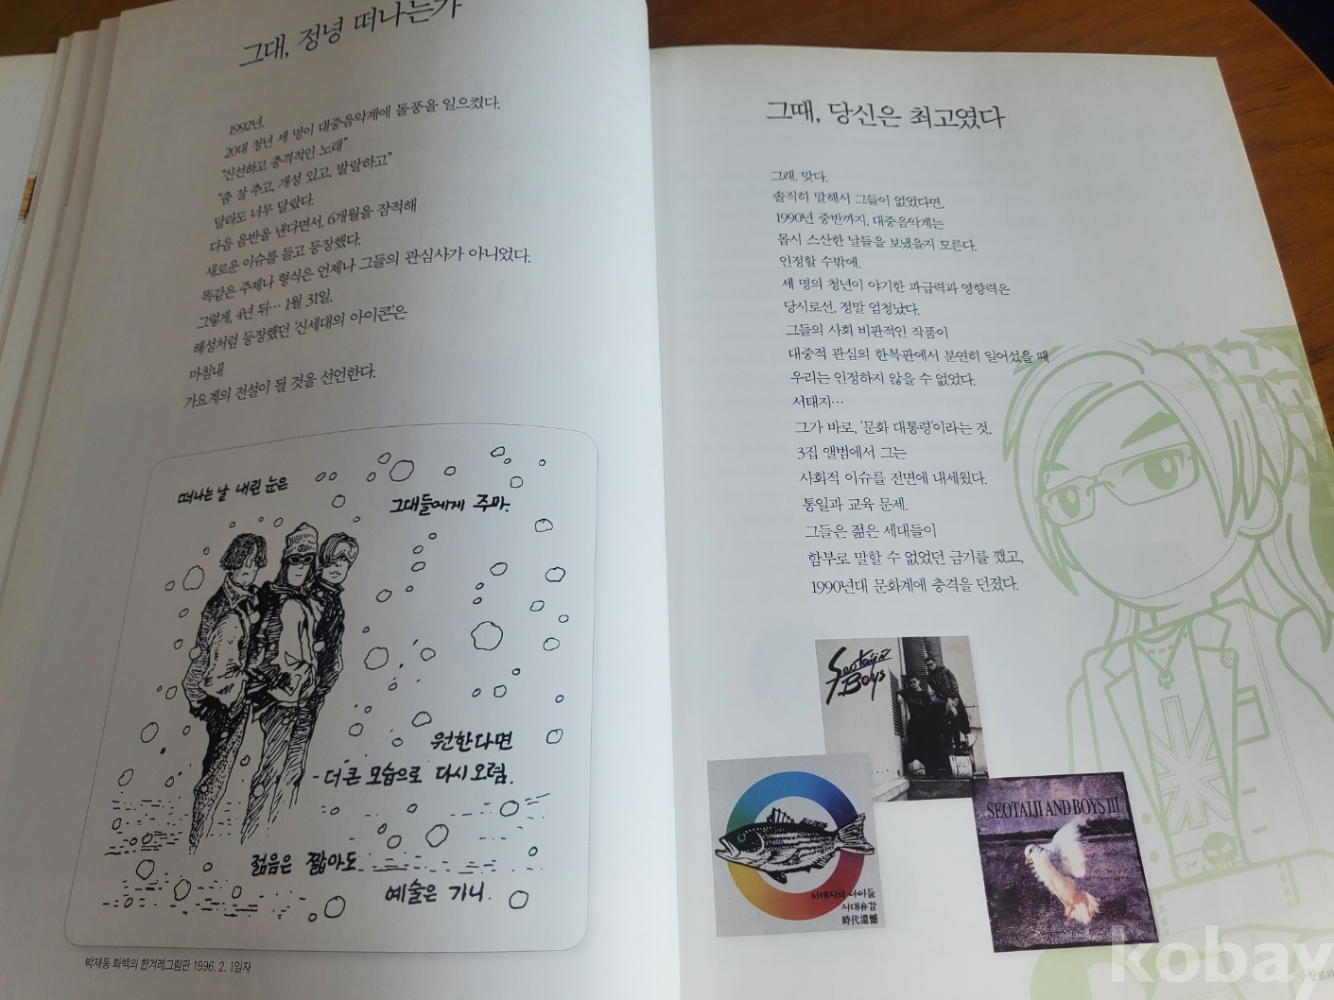 그대, 정녕 떠나는가
1992년,
20대 청년 세 명이 대중음악계에 돌풍을 일으켰다.
"신선하고 충격적인 노래"
"춤 잘 추고, 개성 있고, 발랄하고"
달라도 너무 달랐다.
다음 음반을 낸다면서, 6개월을 잠적해
새로운 이슈를 들고 등장했다.
똑같은 주제나 형식은 언제나 그들의 관심사가 아니었다.
그렇게, 4년 뒤… 1월 31일.
혜성처럼 등장했던 '신세대의 아이콘'은
마침내
가요계의 전설이 될 것을 선언한다.
떠나는 날 내린 눈은
그대들에게 주마.
원한다면
더 큰 모습으로 다시 오렴.
젊음은 짧아도
예술은 기니.
박재동 화백의 한겨레그림판 1996. 2. 1일자
그때, 당신은 최고였다
그래, 맞다.
솔직히 말해서 그들이 없었다면,
1990년 중반까지, 대중음악계는
몹시 스산한 날들을 보냈을지 모른다.
인정할 수밖에.
세 명의 청년이 야기한 파급력과 영향력은
당시로선, 정말 엄청났다.
그들의 사회 비판적인 작품이
대중적 관심의 한복판에서 분연히 일어섰을 때
우리는 인정하지 않을 수 없었다.
서태지…
그가 바로, '문화 대통령'이라는 것.
3집 앨범에서 그는
사회적 이슈를 전면에 내세웠다.
통일과 교육 문제.
그들은 젊은 세대들이
함부로 말할 수 없었던 금기를 깼고,
1990년대 문화계에 충격을 던졌다.
Seotaiji
Boys
서태지와 아이들
시대유감
時代遺憾
SEOTAIJI AND BOYS III
kobay